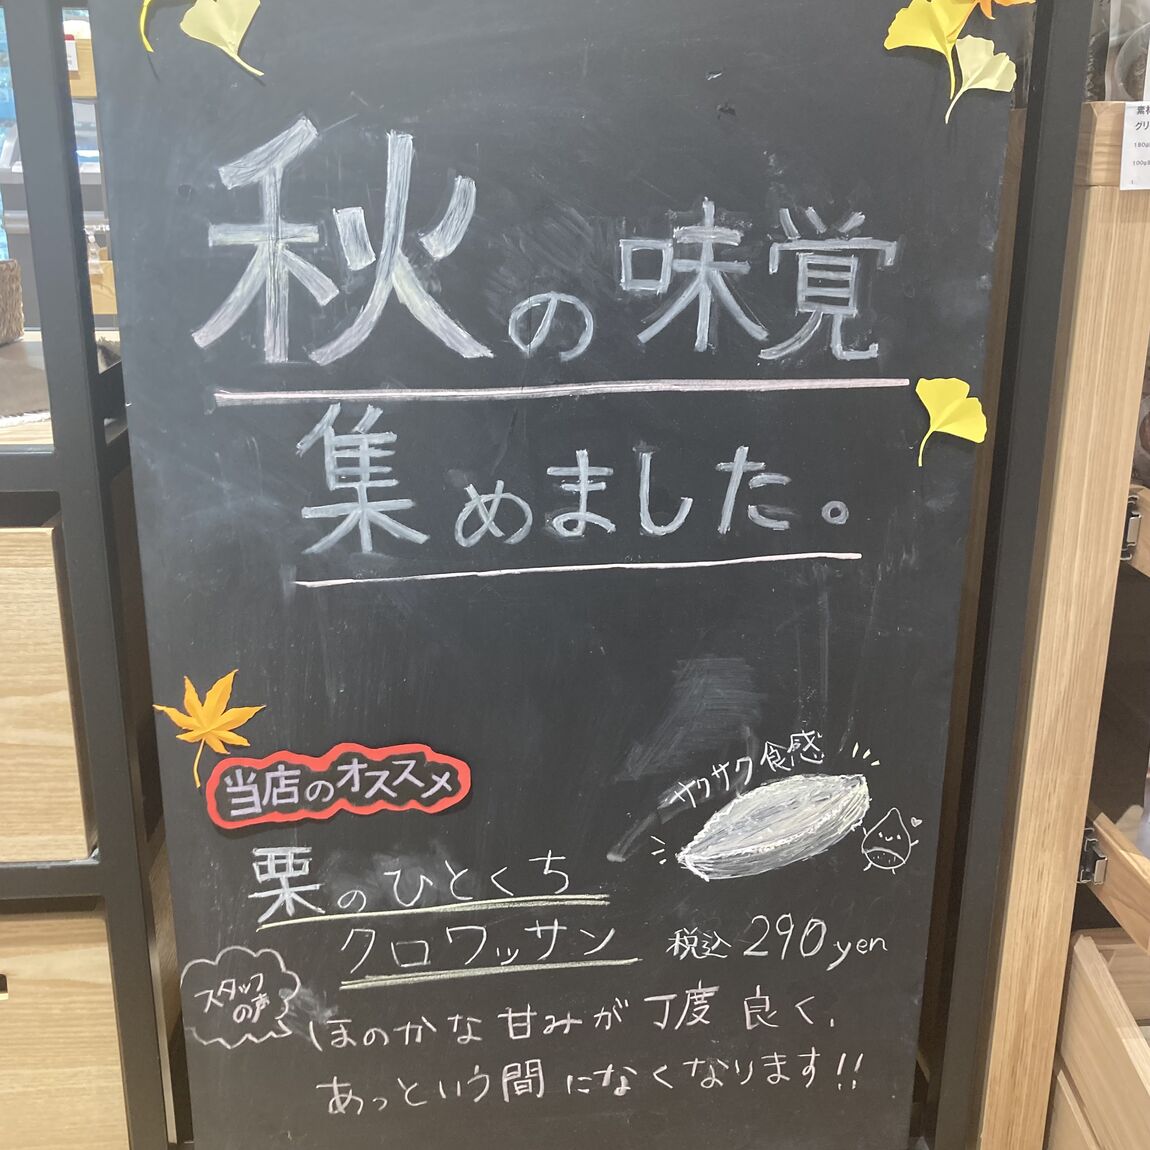 秋の味覚
集めました。
当店のオススメ
サクサク食感
栗のひとくち
クロワッサン
税込290yen
スタッフ
の声
ほのかな甘みが丁度良く、
あっという間になくなります!!
素材
グリ
180g
100g